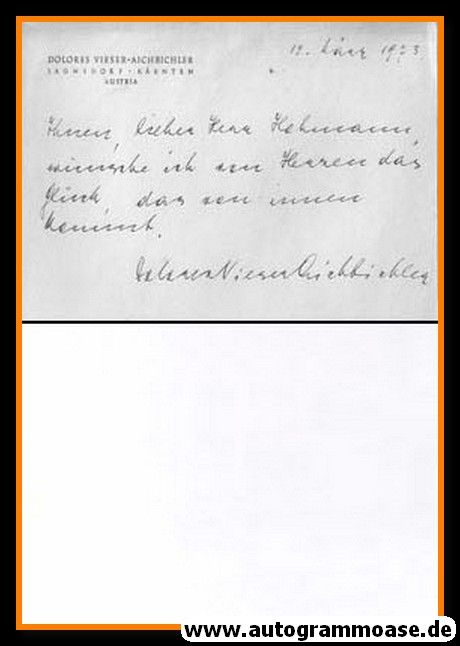 DOLORES VIESER-AICHBICHLER
SAGNSDORF · KÄRNTEN
AUSTRIA
12. März 1973
Ihnen, lieber Herr Hehmann,
wünsche ich von Herzen das
Glück, das von innen
kommt.
Dolores Vieser Aichbichler
www.autogrammoase.de